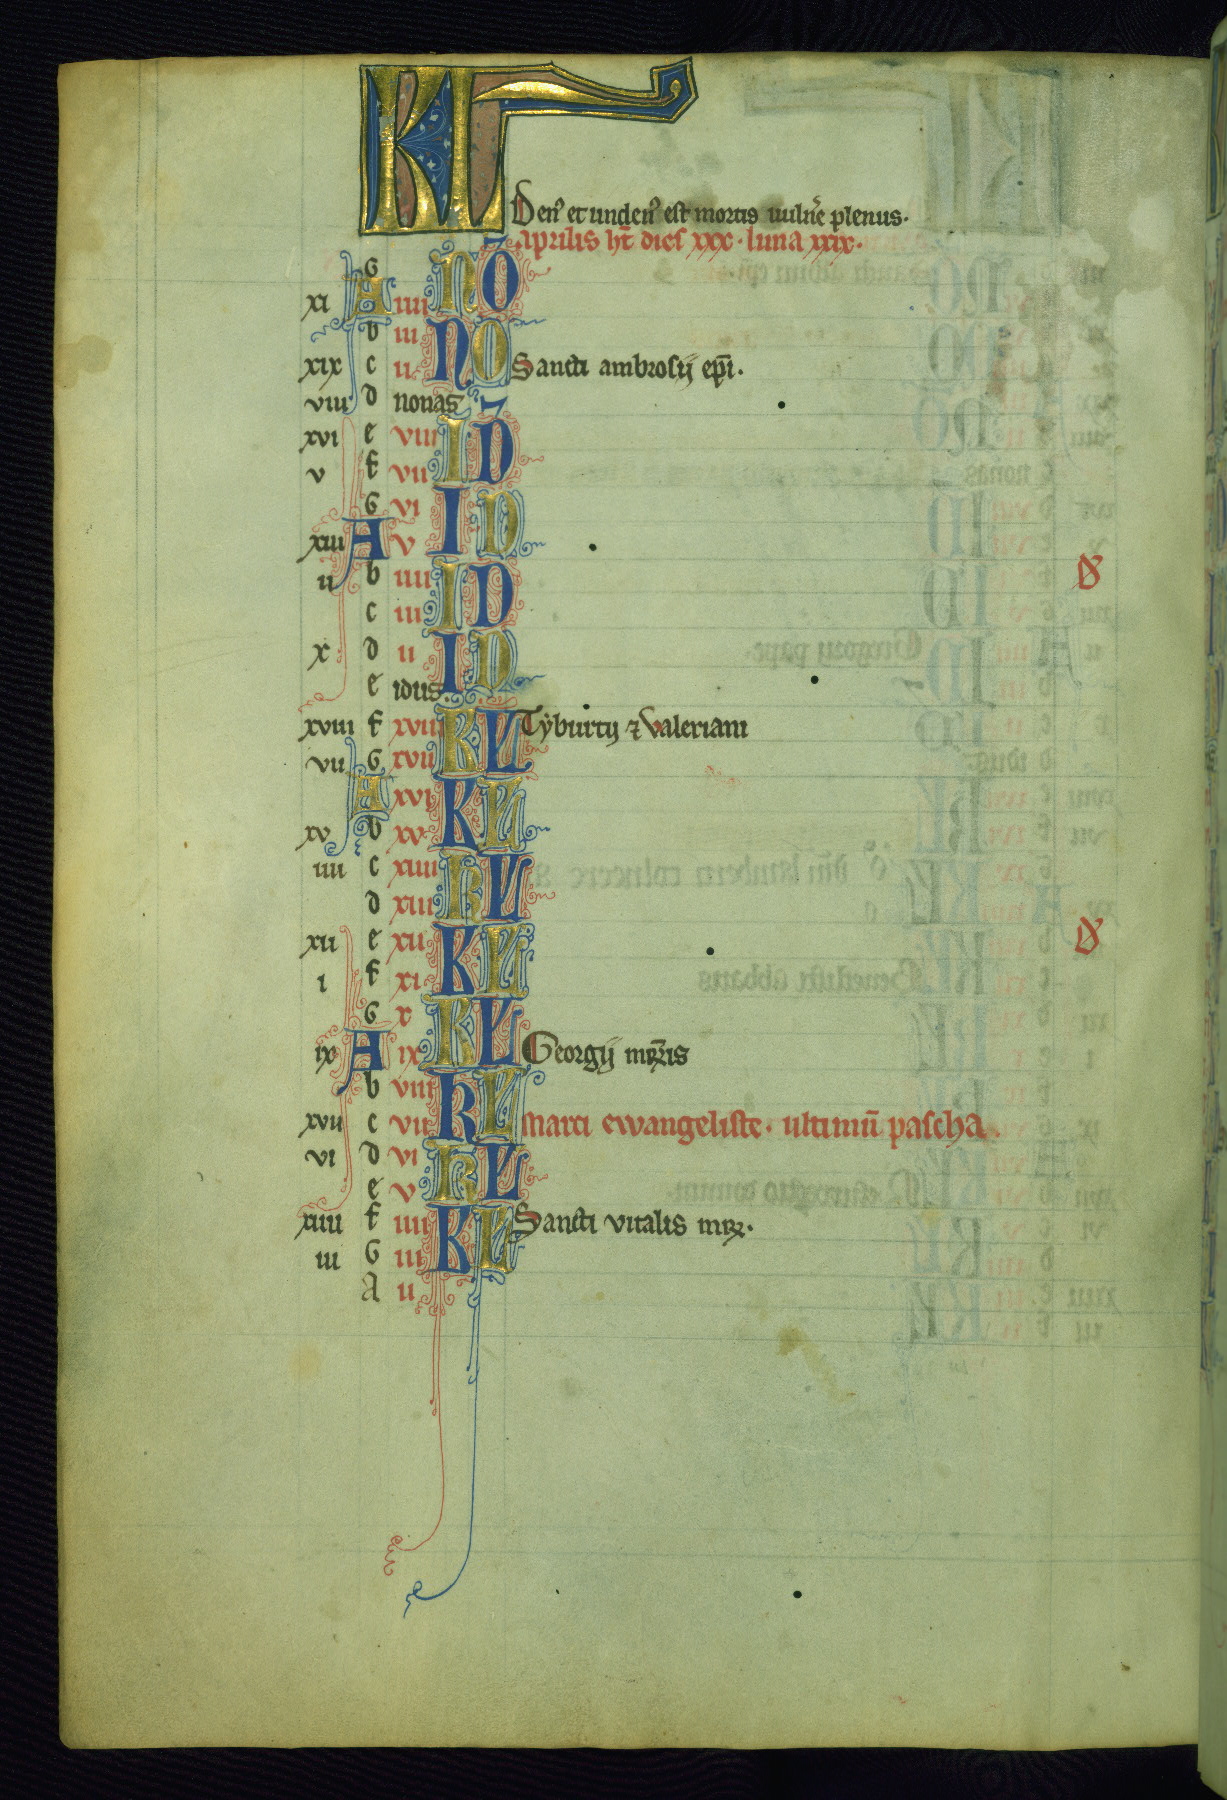 KL
Den⁹ et unden⁹ est mortis uuln̄e plenus.
Aprilis ht̄ dies xxx. luna xxix.
G
xi A iiii NO
b iii
xix c ii NO Sancti ambrosij ep̄i.
viii d nonas
xvi e viii ID
v f vii
G vi ID
xiii A v
ii b iiii ID
c iii
x d ii ID
e idus.
xviii f xviii KL Tyburtij ⁊ Valeriani
vii G xvii
A xvi KL
xv b xv
iiii c xiiii KL
d xiii
xii e xii KL
i f xi
G x KL
ix A ix Georgij mr̄is
b viii KL
xvii c vii Marci ewangeliste. ultimū pascha.
vi d vi KL
e v
xiiii f iiii KL Sancti vitalis mr̄.
iii G iii
A ii